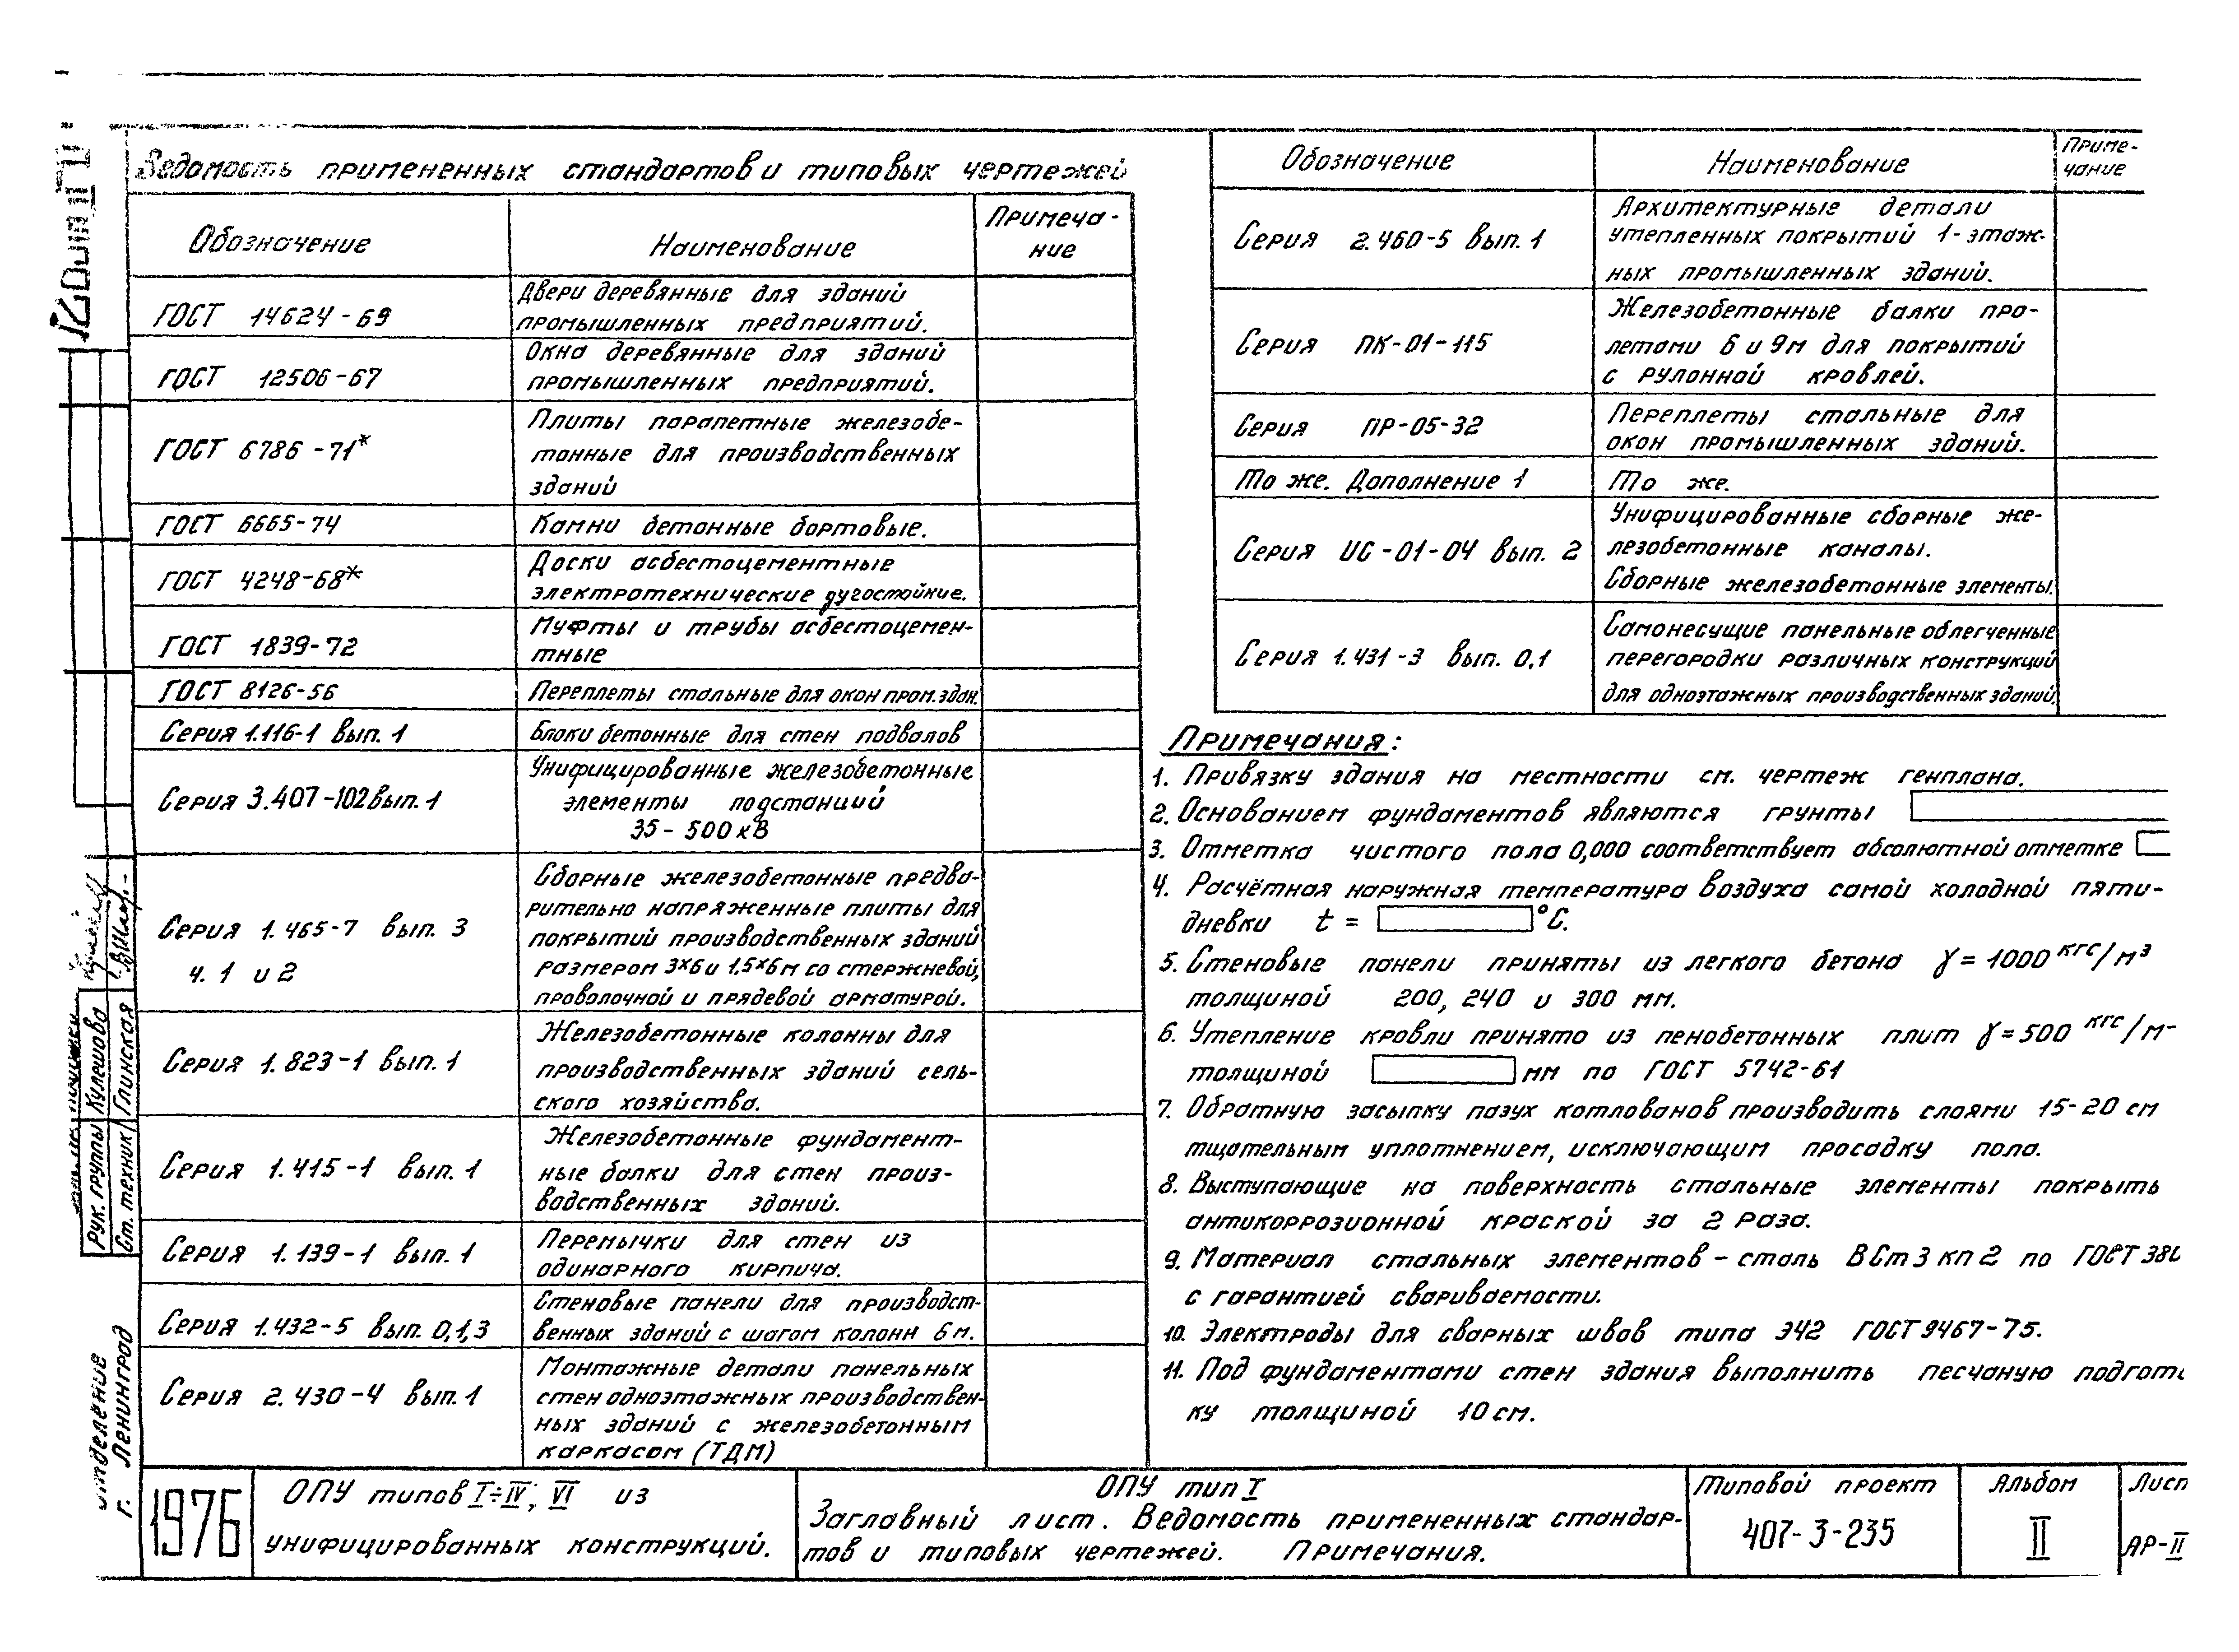 Ведомость примененных стандартов и типовых чертежей
Обозначение
Наименование
Примеча-
ние
ГОСТ 14624-69
Двери деревянные для зданий
промышленных предприятий.
ГОСТ 12506-67
Окна деревянные для зданий
промышленных предприятий.
ГОСТ 6786-71*
Плиты парапетные железобе-
тонные для производственных
зданий
ГОСТ 6665-74
Камни бетонные бортовые.
ГОСТ 4248-68*
Доски асбестоцементные
электротехнические дугостойкие.
ГОСТ 1839-72
Муфты и трубы асбестоцемен-
тные
ГОСТ 8126-56
Переплеты стальные для окон пром.здан.
Серия 1.116-1 вып. 1
Блоки бетонные для стен подвалов
Серия 3.407-102 вып. 1
Унифицированные железобетонные
элементы подстанций
35-500 кВ
Серия 1.465-7 вып. 3
ч. 1 и 2
Сборные железобетонные предва-
рительно напряженные плиты для
покрытий производственных зданий
размером 3×6 и 1,5×6м со стержневой,
проволочной и прядевой арматурой.
Серия 1.823-1 вып. 1
Железобетонные колонны для
производственных зданий сель-
ского хозяйства.
Серия 1.415-1 вып. 1
Железобетонные фундамент-
ные балки для стен произ-
водственных зданий.
Серия 1.139-1 вып. 1
Перемычки для стен из
одинарного кирпича.
Серия 1.432-5 вып. 0,1,3
Стеновые панели для производст-
венных зданий с шагом колонн 6м.
Серия 2.430-4 вып. 1
Монтажные детали панельных
стен одноэтажных производствен-
ных зданий с железобетонным
каркасом (ТДМ)
Обозначение
Наименование
Приме-
чание
Серия 2.460-5 вып. 1
Архитектурные детали
утепленных покрытий 1-этаж-
ных промышленных зданий.
Серия ПК-01-115
Железобетонные балки про-
летами 6 и 9м для покрытий
с рулонной кровлей.
Серия ПР-05-32
Переплеты стальные для
окон промышленных зданий.
То же. Дополнение 1
То же.
Серия ИС-01-04 вып. 2
Унифицированные сборные же-
лезобетонные каналы.
Сборные железобетонные элементы.
Серия 1.431-3 вып. 0,1
Самонесущие панельные облегченные
перегородки различных конструкций
для одноэтажных производственных зданий.
Примечания:
1. Привязку здания на местности см. чертеж генплана.
2. Основанием фундаментов являются грунты
3. Отметка чистого пола 0,000 соответствует абсолютной отметке
4. Расчётная наружная температура воздуха самой холодной пяти-
дневки t = °С.
5. Стеновые панели приняты из легкого бетона γ = 1000 кгс/м³
толщиной 200, 240 и 300 мм.
6. Утепление кровли принято из пенобетонных плит γ = 500 кгс/м
толщиной мм по ГОСТ 5742-61
7. Обратную засыпку пазух котлованов производить слоями 15-20 см
тщательным уплотнением, исключающим просадку пола.
8. Выступающие на поверхность стальные элементы покрыть
антикоррозионной краской за 2 раза.
9. Материал стальных элементов - сталь ВСт3кп2 по ГОСТ 380
с гарантией свариваемости.
10. Электроды для сварных швов типа Э42 ГОСТ 9467-75.
11. Под фундаментами стен здания выполнить песчаную подгото
ку толщиной 10 см.
Рук. группы Кулешова
Ст. техник Глинская
отделение
г. Ленинград
1976
ОПУ типов I÷IV; VI из
унифицированных конструкций.
ОПУ тип I
Заглавный лист. Ведомость примененных стандар-
тов и типовых чертежей. Примечания.
Типовой проект
407-3-235
Альбом
II
Лист
АР-II